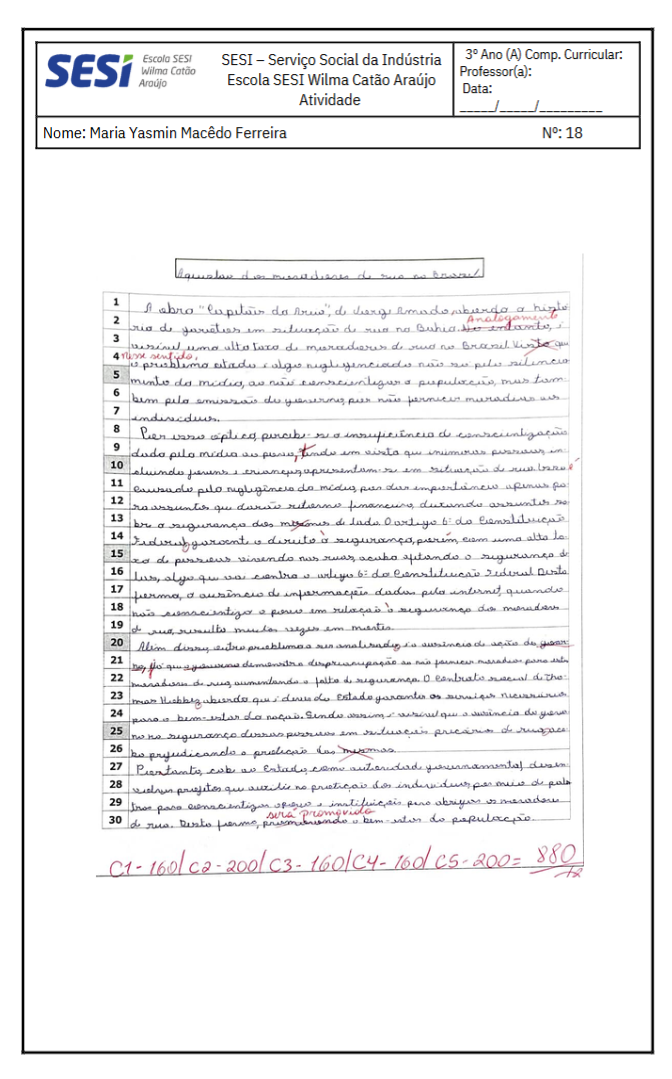 SESI
Escola SESI
Wilma Catão
Araújo
SESI – Serviço Social da Indústria
Escola SESI Wilma Catão Araújo
Atividade
3º Ano (A) Comp. Curricular:
Professor(a):
Data:
_____/_____/_________
Nome: Maria Yasmin Macêdo Ferreira
Nº: 18
A questão dos moradores de rua no Brasil
1 A obra "Capitães da Areia", de Jorge Amado aborda a histó
Analogamente
2 ria de garotos em situação de rua na Bahia. No entanto, é
3 visível uma alta taxa de moradores de rua no Brasil. Visto que
Nesse sentido,
4 o problema citado é algo negligenciado não só pelo silencia
5 mento da mídia, ao não conscientizar a população, mas tam
6 bém pela omissão do governo, por não fornecer moradias aos
7 indivíduos.
8 Por essa óptica, percebe-se a insuficiência de conscientização
9 dada pela mídia ao povo, tendo em vista que inúmeras pessoas, in
10 cluindo jovens e crianças, apresentam-se em situação de rua. Isso é
11 causado pela negligência da mídia, por dar importância apenas pa
12 ra assuntos que darão retorno financeiro, deixando assuntos so
13 bre a segurança dos mesmos de lado. O artigo 6º da Constituição
14 Federal garante o direito à segurança, porém, com uma alta ta
15 xa de pessoas vivendo nas ruas, acaba afetando a segurança de
16 las, algo que vai contra o artigo 6º da Constituição Federal. Desta
17 forma, a ausência de informações dadas pela internet, quando
18 não conscientiza o povo em relação à segurança dos moradores
19 de rua, resulta muitas vezes em mortes.
20 Além disso, outro problema a ser analisado, é a ausência de ação do gover
21 no, já que o governo demonstra despreocupação ao não fornecer moradias para esses
22 moradores de rua, aumentando a falta de segurança. O contrato social de Tho
23 mas Hobbes aborda que é dever do Estado garantir os serviços necessários
24 para o bem-estar da nação. Sendo assim, é visível que a ausência do gover
25 no na segurança dessas pessoas em situações precárias de rua, aca
26 ba prejudicando a proteção das mesmas.
27 Portanto, cabe ao Estado, como autoridade governamental, desen
28 volver projetos que auxilie na proteção dos indivíduos, por meio de pales
29 tras para conscientizar o povo e instituições para abrigar os moradores
será promovido
30 de rua. Desta forma, promovendo o bem-estar da população.
C1-160/C2-200/C3-160/C4-160/C5-200= 880